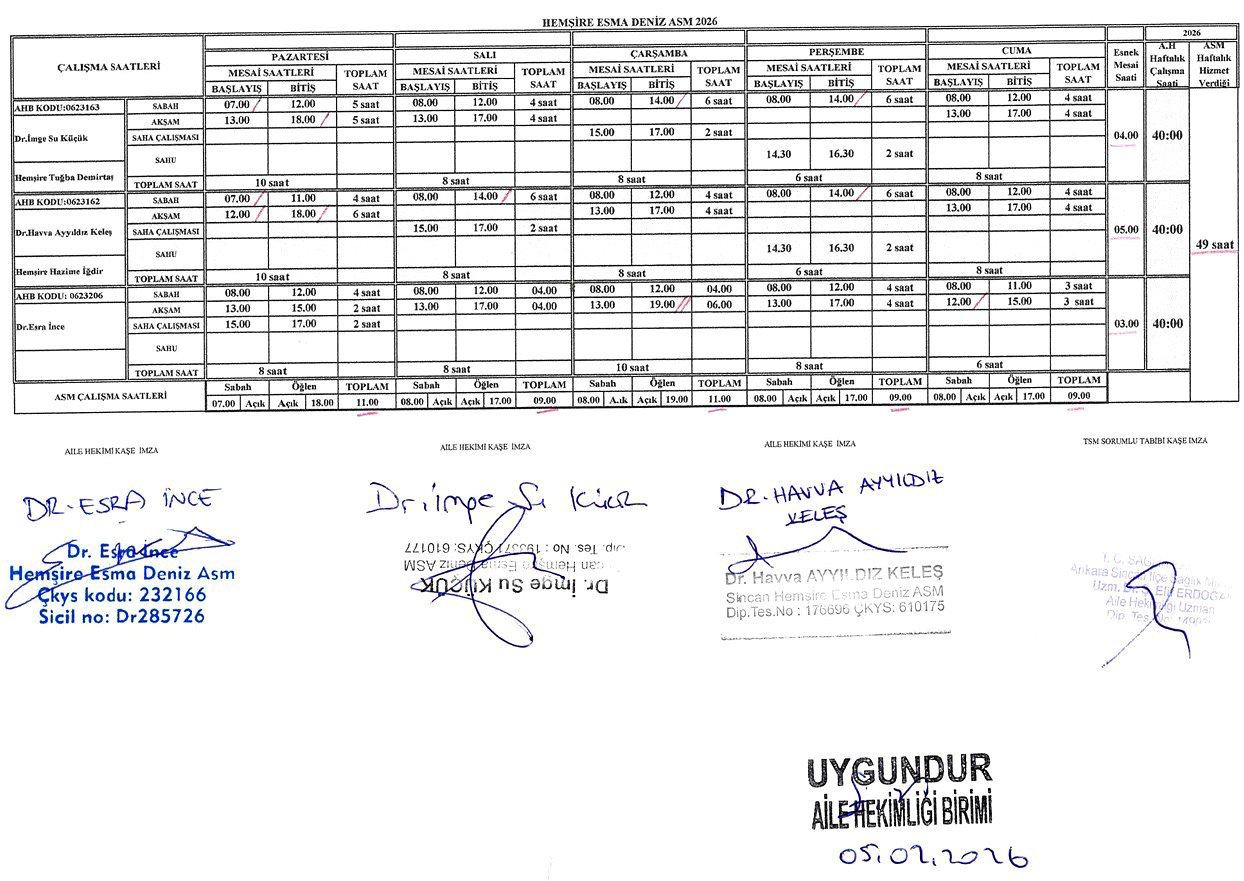 HEMŞİRE ESMA DENİZ ASM 2026
ÇALIŞMA SAATLERİ PAZARTESİ SALI ÇARŞAMBA PERŞEMBE CUMA Esnek Mesai Saati 2026
MESAİ SAATLERİ TOPLAM SAAT MESAİ SAATLERİ TOPLAM SAAT MESAİ SAATLERİ TOPLAM SAAT MESAİ SAATLERİ TOPLAM SAAT MESAİ SAATLERİ TOPLAM SAAT A.H Haftalık Çalışma Saati ASM Haftalık Hizmet Verdiği
BAŞLAYIŞ BİTİŞ BAŞLAYIŞ BİTİŞ BAŞLAYIŞ BİTİŞ BAŞLAYIŞ BİTİŞ BAŞLAYIŞ BİTİŞ
AHB KODU:0623163 SABAH 07.00 12.00 5 saat 08.00 12.00 4 saat 08.00 14.00 6 saat 08.00 14.00 6 saat 08.00 12.00 4 saat
AKŞAM 13.00 18.00 5 saat 13.00 17.00 4 saat 13.00 17.00 4 saat
Dr.İmge Su Küçük SAHA ÇALIŞMASI 15.00 17.00 2 saat 04.00 40:00
SAHU 14.30 16.30 2 saat
Hemşire Tuğba Demirtaş TOPLAM SAAT 10 saat 8 saat 8 saat 6 saat 8 saat
AHB KODU:0623162 SABAH 07.00 11.00 4 saat 08.00 14.00 6 saat 08.00 12.00 4 saat 08.00 14.00 6 saat 08.00 12.00 4 saat
AKŞAM 12.00 18.00 6 saat 13.00 17.00 4 saat 13.00 17.00 4 saat
Dr.Havva Ayyıldız Keleş SAHA ÇALIŞMASI 15.00 17.00 2 saat 05.00 40:00
SAHU 14.30 16.30 2 saat 49 saat
Hemşire Hazime İğdir TOPLAM SAAT 10 saat 8 saat 8 saat 6 saat 8 saat
AHB KODU: 0623206 SABAH 08.00 12.00 4 saat 08.00 12.00 04.00 08.00 12.00 04.00 08.00 12.00 4 saat 08.00 11.00 3 saat
AKŞAM 13.00 15.00 2 saat 13.00 17.00 04.00 13.00 19.00 06.00 13.00 17.00 4 saat 12.00 15.00 3 saat
Dr.Esra İnce SAHA ÇALIŞMASI 15.00 17.00 2 saat 03.00 40:00
SAHU
TOPLAM SAAT 8 saat 8 saat 10 saat 8 saat 6 saat
ASM ÇALIŞMA SAATLERİ Sabah Öğlen TOPLAM Sabah Öğlen TOPLAM Sabah Öğlen TOPLAM Sabah Öğlen TOPLAM Sabah Öğlen TOPLAM
07.00 Açık Açık 18.00 11.00 08.00 Açık Açık 17.00 09.00 08.00 A.ık Açık 19.00 11.00 08.00 Açık Açık 17.00 09.00 08.00 Açık Açık 17.00 09.00
AİLE HEKİMİ KAŞE İMZA AİLE HEKİMİ KAŞE İMZA AİLE HEKİMİ KAŞE İMZA TSM SORUMLU TABİBİ KAŞE İMZA
DR. ESRA İNCE
Dr. Esra İnce
Hemşire Esma Deniz Asm
Çkys kodu: 232166
Sicil no: Dr285726
Dr. İmge Su Küçük
Dr. İmge Su KÜÇÜK
can Hemşire Esma Deniz ASM
Dip. Tes. No : 193371 ÇKYS: 610177
DR. HAVVA AYYILDIZ
KELEŞ
Dr. Havva AYYILDIZ KELEŞ
Sincan Hemşire Esma Deniz ASM
Dip.Tes.No : 176696 ÇKYS: 610175
T. C. SAĞ
Ankara Sincan İlçe Sağlık
Uzm. Dr. Elif ERDOĞ
Aile Hekimliği Uzman
Dip. Tes.
UYGUNDUR
AİLE HEKİMLİĞİ BİRİMİ
05.02.2026